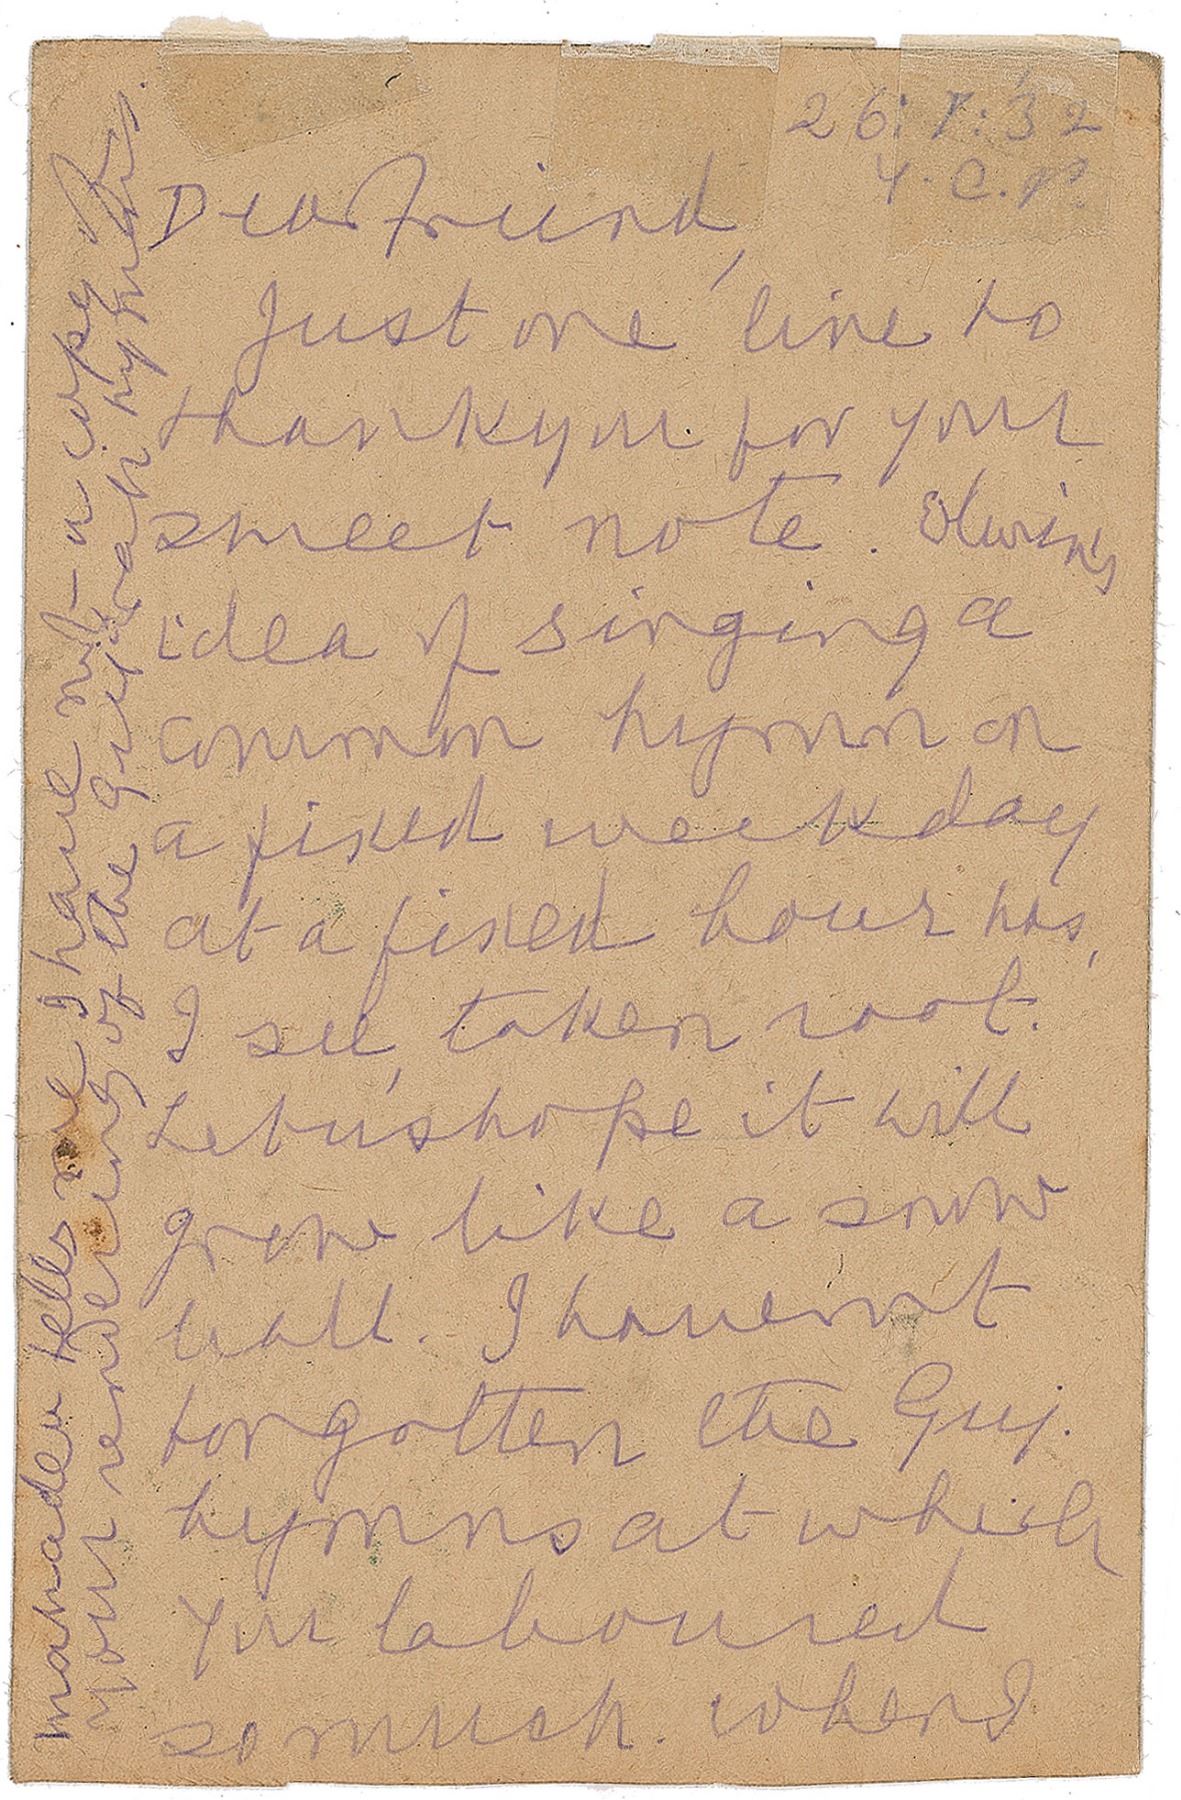 26:7:'32
Y.C.P.
Dear friend,
Just one line to
thank you for your
sweet note. Olwin's
idea of singing a
common hymn on
a fixed week day
at a fixed hour has,
I see, taken root.
Let us hope it will
grow like a snow
ball. I have not
forgotten the Guj.
hymns at which
you laboured
so much. When I
Mahadev tells me I have not a copy of
your rendering of the Gujarati hymns.